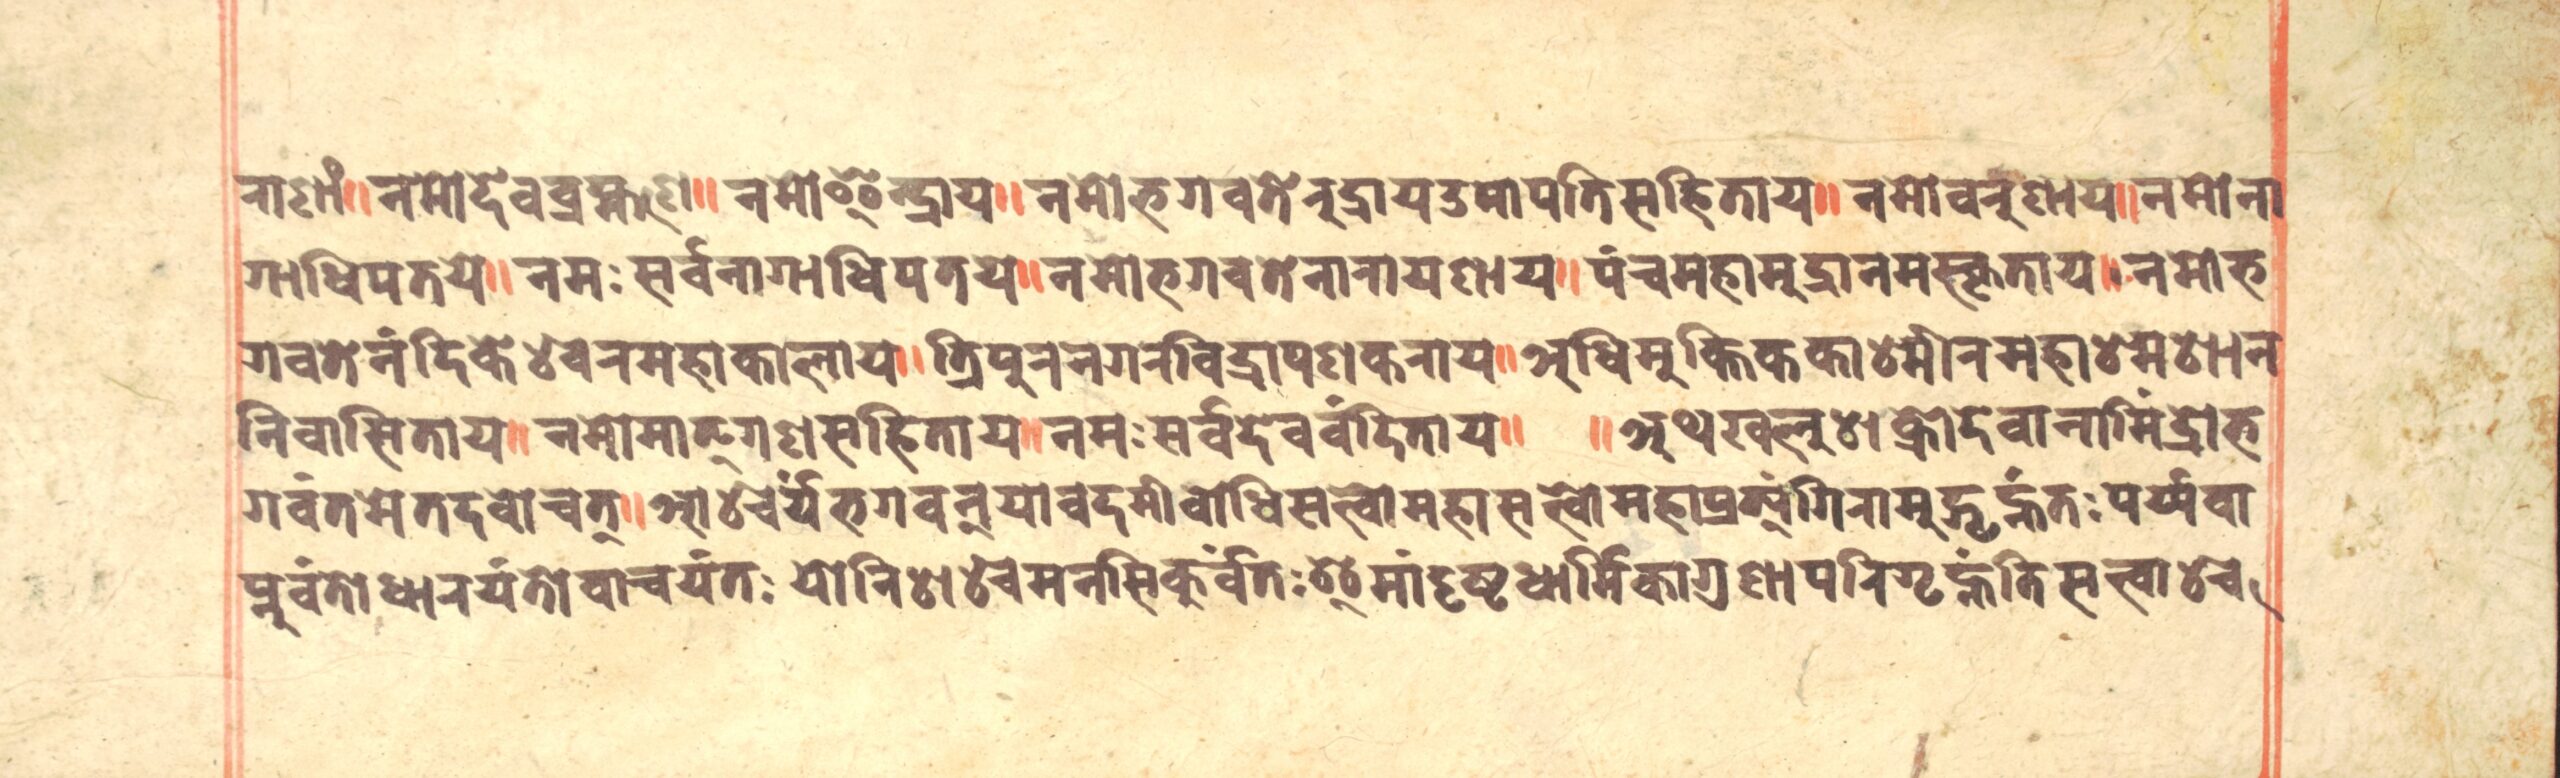 राणां॥नमोदेवब्रह्मणे॥नमोइन्द्राय॥नमोभगवतेरुद्रायउमापतिसहिताय॥नमोवरुणाय॥नमोना
गाधिपतये॥नमःसर्वनागाधिपतये॥नमोभगवतेनारायणाय॥पंचमहामुद्रानमस्कृताय॥नमोभ
गवतेनंदिकेश्वरमहाकालाय॥त्रिपुरनगरविद्रापणकराय॥अधिमुक्तिककाश्मीरमहाश्मशान
निवासिताय॥नमोमातृगणसहिताय॥नमःसर्वदेववंदिताय॥ ॥अथखलुशक्रोदेवानामिंद्रोभ
गवंतमेतदवोचत्॥आश्चर्यंभगवन्यावदमीबोधिसत्त्वोमहासत्त्वोमहाप्रत्यंगिरामुद्गृह्णंतःपर्यवा
प्नुवंतोधारयंतोवाचयंतःयोनिशश्चमनसिकुर्वंतःइमांदृष्टधार्मिकागुणापरिगृह्णंतिसत्त्वाश्च